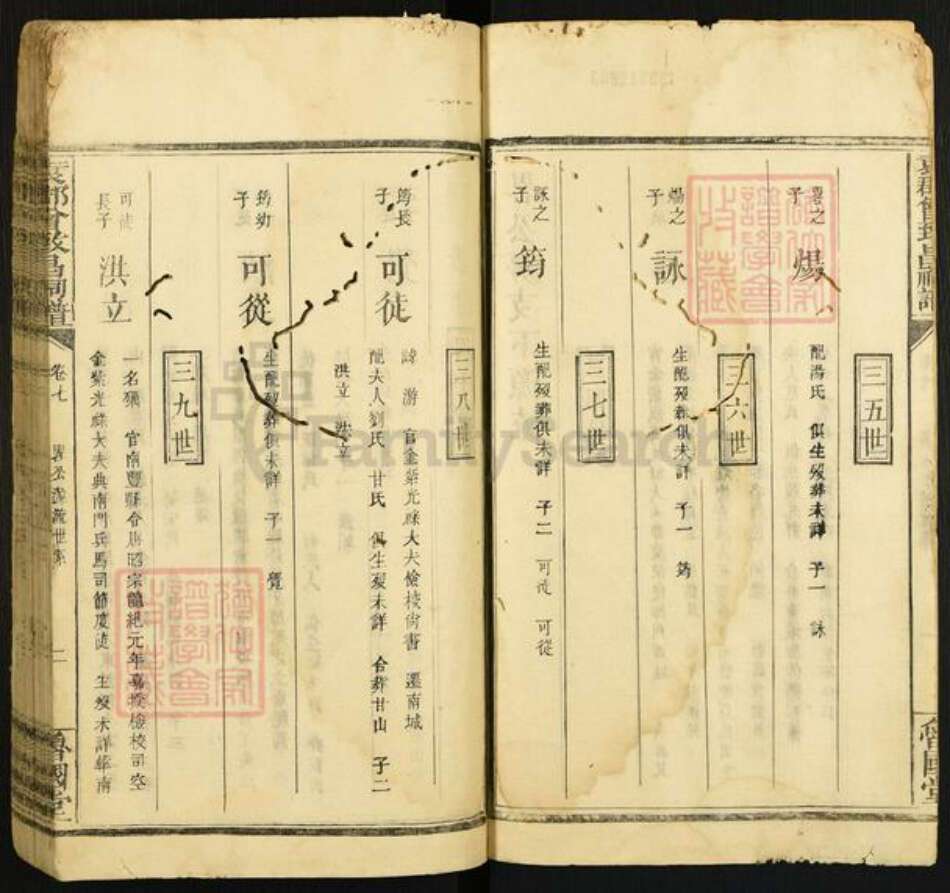 三五世
晷之
子
煬
配湯氏 俱生歿葬未詳 子一 詠
三六世
煬之
子
詠
生配歿葬俱未詳 子一 筠
三七世
詠之
子
筠
生配歿葬俱未詳 子二 可徒 可從
三八世
筠長
子
可徒
諱游 官金紫光祿大夫檢校尚書 遷南城
配夫人劉氏 甘氏 俱生歿未詳 合葬甘山 子二
洪立
筠幼
子
可從
生配歿葬俱未詳 子一
三九世
可徒
長子
洪立
一名 官南豐縣令唐昭宗龍紀元年嘉授檢校司空
金紫光祿大夫典南門兵馬司節度使 生歿未詳葬南
卷七
二
魯國堂
魯國堂
FamilySearch